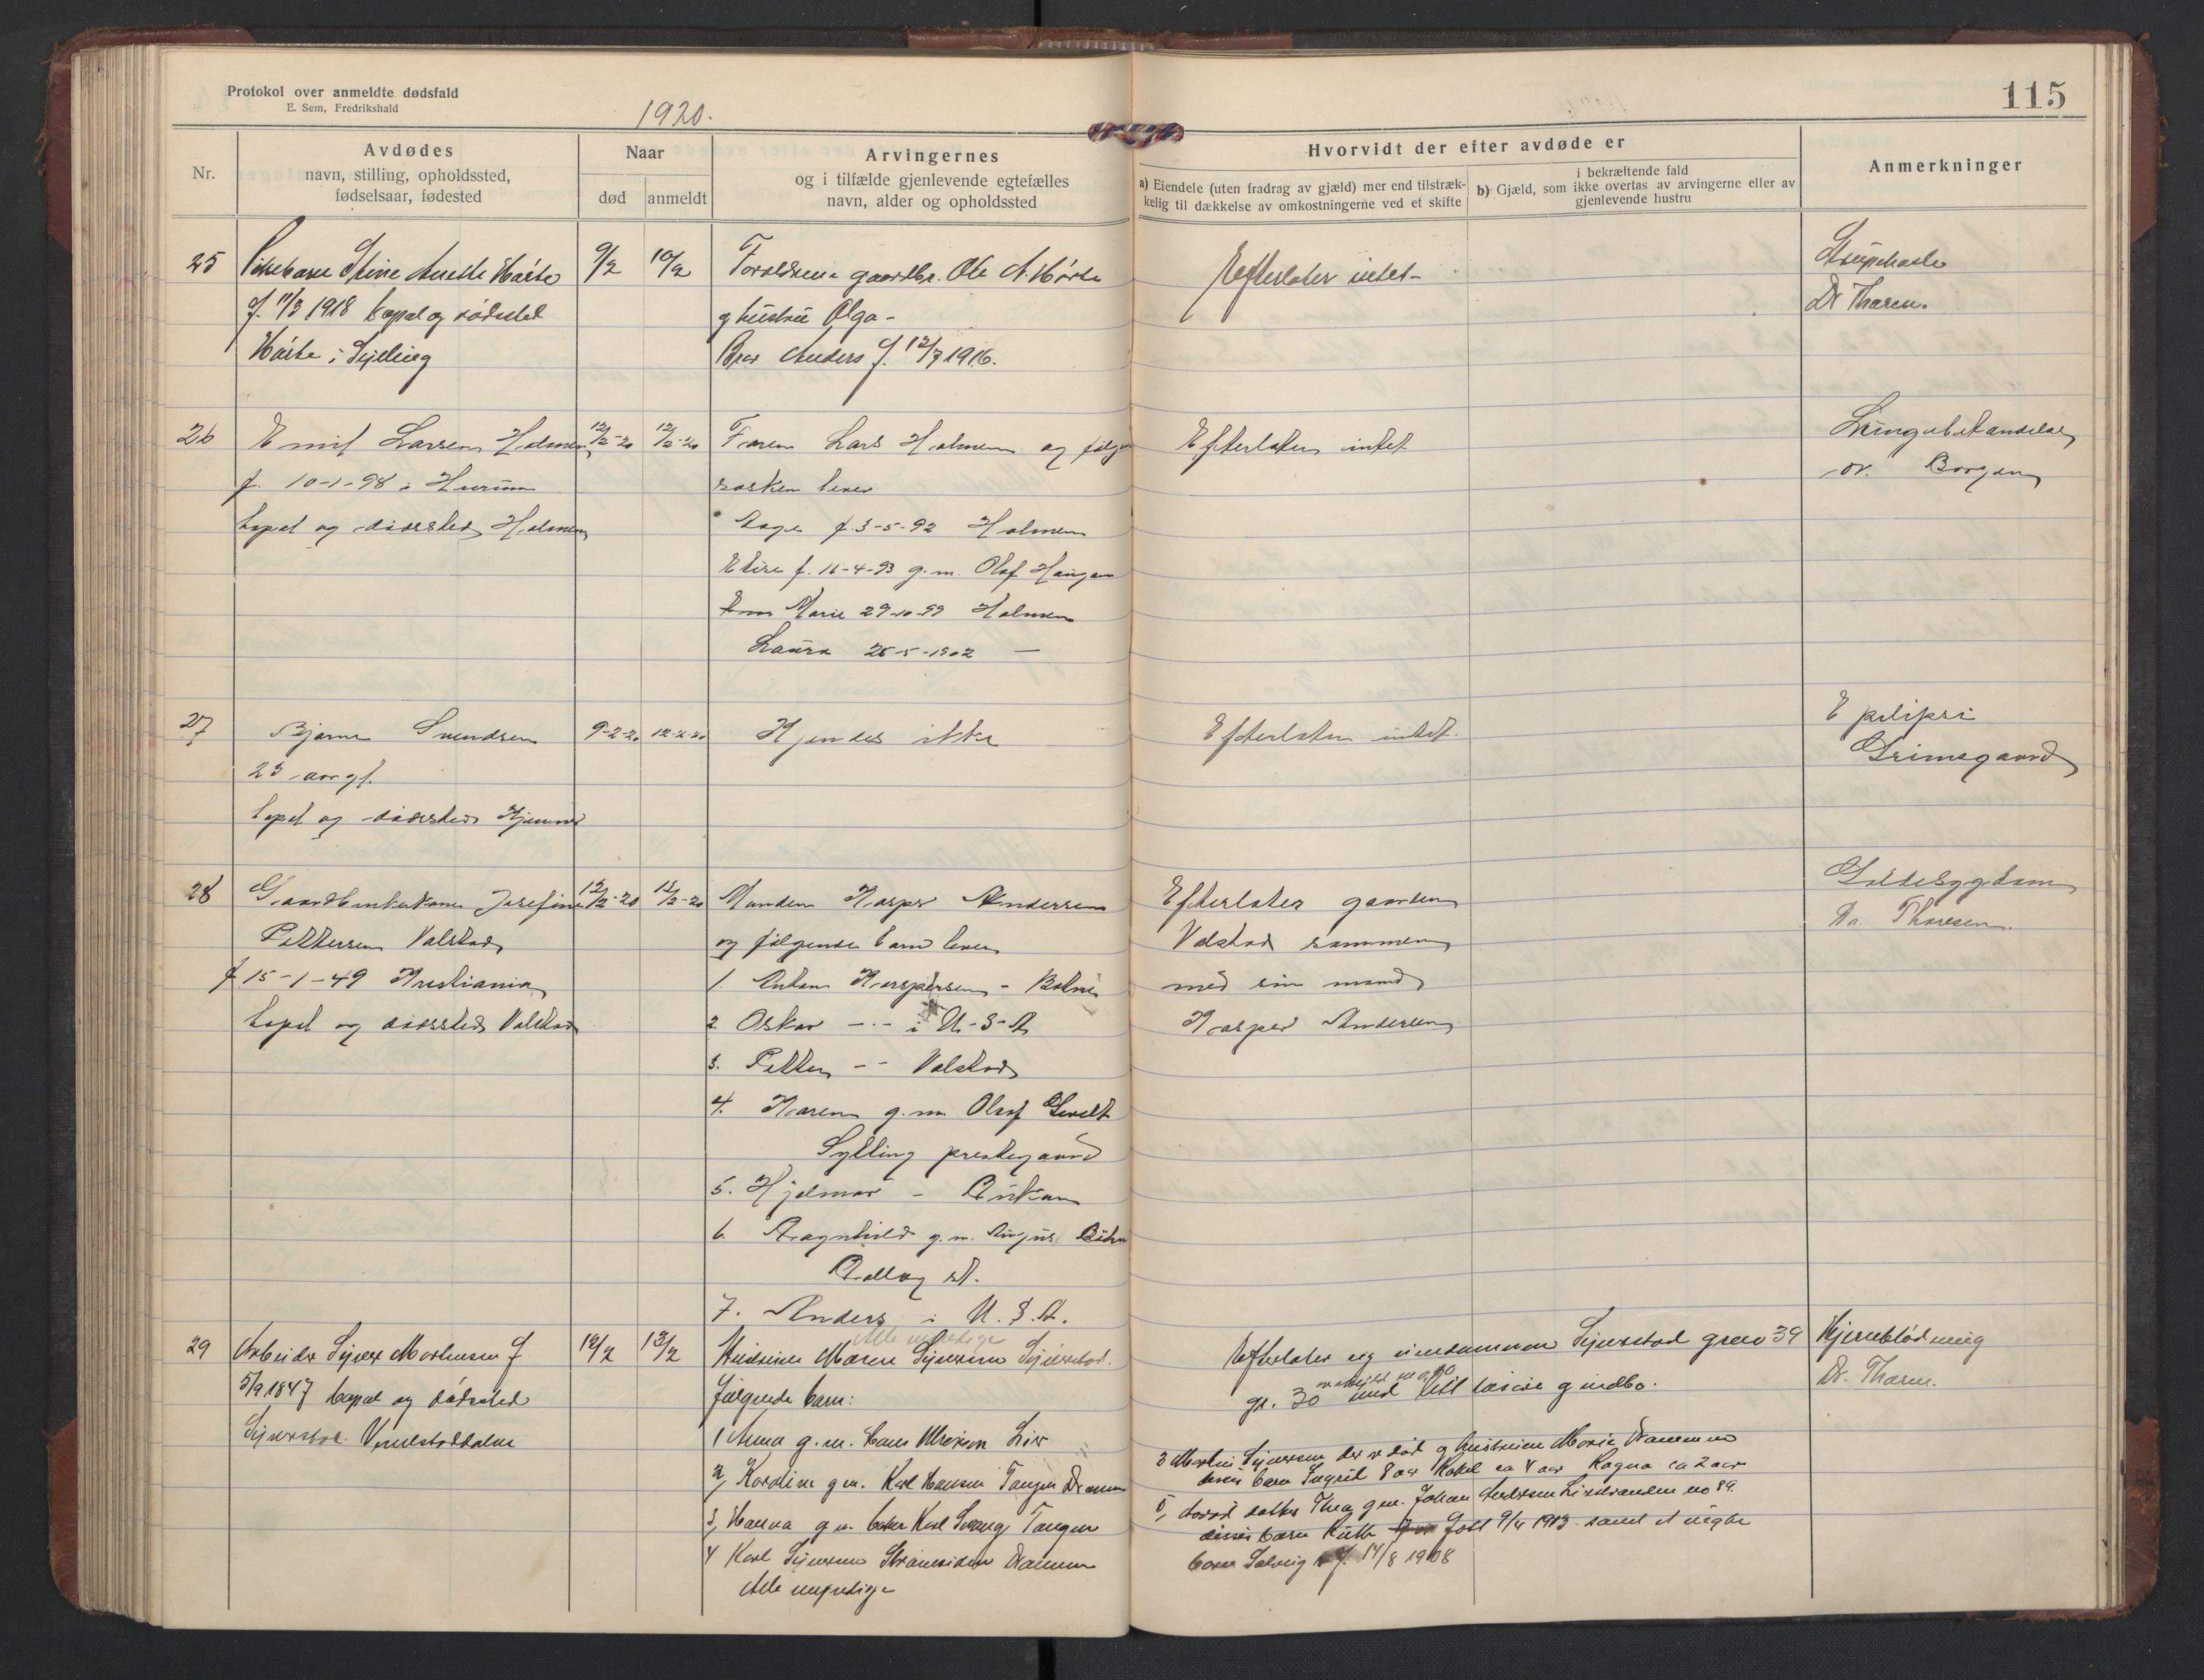 Protokol over anmeldte dødsfald
E. Sem, Fredrikshald
1920.
115
Nr.
Avdødes
navn, stilling, opholdssted,
fødselsaar, fødested
Naar
død
anmeldt
Arvingernes
og i tilfælde gjenlevende egtefælles
navn, alder og opholdssted
Hvorvidt der efter avdøde er
a) Eiendele (uten fradrag av gjæld) mer end tilstræk-
kelig til dækkelse av omkostningerne ved et skifte
i bekræftende fald
b) Gjæld, som ikke overtas av arvingerne eller av
gjenlevende hustru
Anmerkninger
25
Pikebarn Stine Anette Hørte
f. 11/3 1918 bopæl og dødssted
Hørte i Sylling
9/2
10/2
Forældrene gaardbr. Ole A. Hørte
og hustru Olga -
Bror Anders f. 12/7 1916.
Efterlater intet -
Strupehoste
Dr Thoresen.
26
Emil Larsen Holmen
f. 10-1-98 i Hurum
bopæl og dødssted Holmen
12/2-20
12/2-20
Faren Lars Holmen og følg
søsken lever
Aage f. 3-5-92 Holmen
f. 16-4-93 g.m. Olaf Haugen
Marie 29-10-99 Holmen
Laura 25-5-1902 -
Efterlater intet
Lungebetændelse
Dr. Borgen
27
Bjarne Svendsen
23 aar gl.
bopæl og dødssted Hjemmet
9-2-20
12-2-20
Kjendes ikke
Efterlater intet.
Epelipsi
Grimsgaard
28
Gaardbrukerkone Josefine
Pettersen Valstad
f. 15-1-49 Kristiania
bopæl og dødssted Valstad
12/2-20
13/2-20
Manden Kasper Andersen
og følgende barn lever
1. Anton Kaspersen -
2. Oskar -"- i U-S-A
3. Petter -"- Valstad
4. Karen g.m. Olaf
Sylling prestegaard
5. Hjalmar - Rukan
6. Ragnhild g.m.
Rollag st.
7. Anders i U.S.A.
Alle myndige
Efterlater gaarden
Valstad sammen
med sin mand
Kasper Andersen
Galdesygdom
Dr. Thoresen.
29
Arbeider Syver Mortensen f
5/9 1847 bopæl og dødssted
Syverstad.
12/2
13/2
Hustruen Maren Syversen Syverstad.
følgende barn:
1 Anna g.m. Hans Ulriksen Lier
2, Karoline g m. Karl Hansen Tangen Drammen
3, Hanna g m. baker Karl Svang Tangen
4 Karl Syversen Strømsøiden Drammen
Alle myndige
Efterlater sig eiendommen Syverstad grno 39
gr. 30 med litt løsøre og indbo.
3 Martin Syversen der er død og hustruen Marie Drammen
deres barn Ingrid 8 aar Kakel ca 4 aar Ragna ca 2 aar
5, avdød datter Thea g m. Johan Andersen no 89.
disses barn Ruth født 9/4 1903 samt et uegte
barn Solveig f. 14/8 1908
Hjerneblødning
Dr. Thoresen.